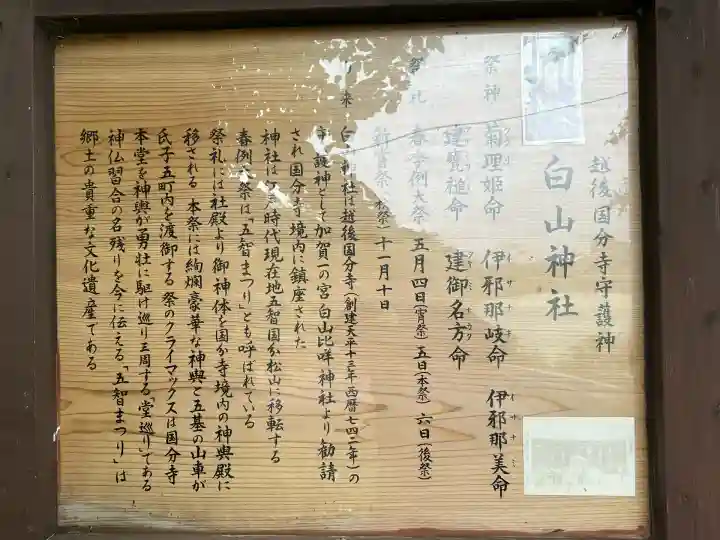 越後国分寺守護神
白山神社
祭神 菊理姫命 伊邪那岐命 伊邪那美命
建御名方命
祭礼 春季例大祭 五月四日(宵祭) 五日(本祭) 六日(後祭)
十一月十日
来 白山神社は越後国分寺(創建天平十三年西暦七四二年)の
守護神として加賀一の宮白山比咩神社より勧請
され国分寺境内に鎮座された
神社は 時代現在地五智国分松山に移転する
春例大祭は「五智まつり」とも呼ばれている
祭礼には社殿より御神体を国分寺境内の神輿殿に
移される 本祭には絢爛豪華な神輿と五基の山車が
氏子五町内を渡御する 祭のクライマックスは国分寺
本堂を神輿が勇壮に駆け巡り三周する「堂巡り」である
神仏習合の名残りを今に伝える「五智まつり」は
郷土の貴重な文化遺産である